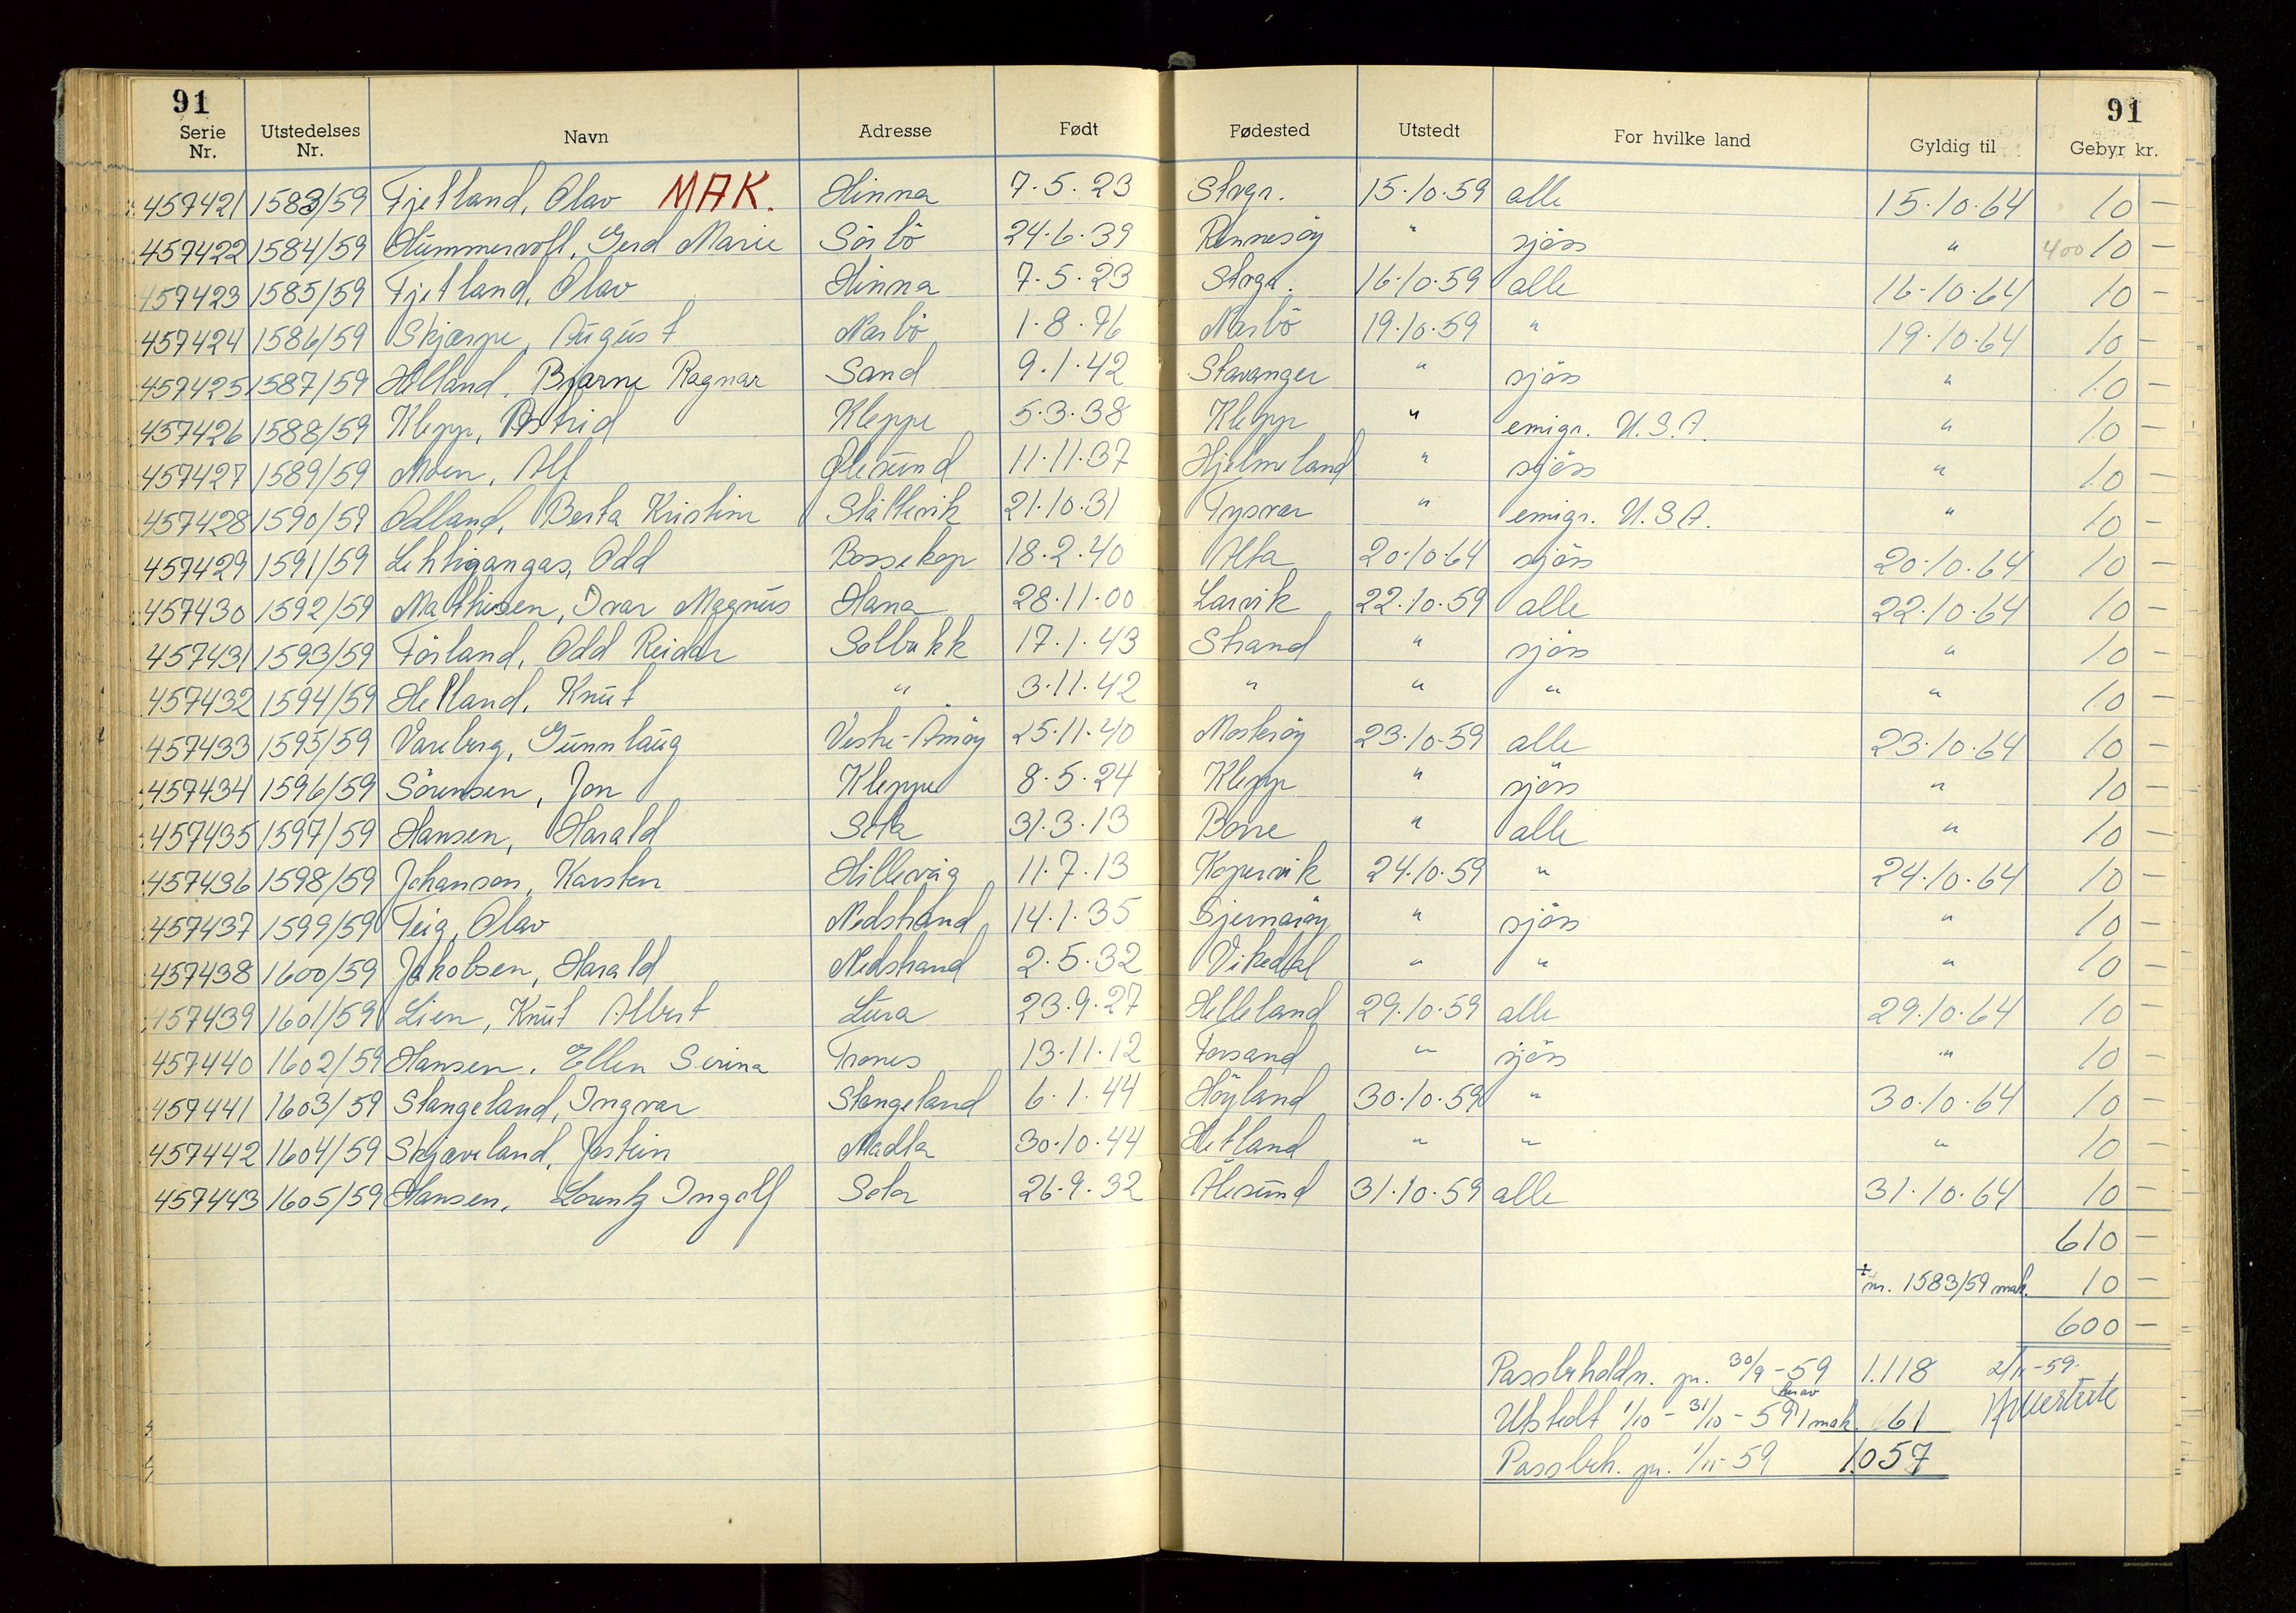 91 91
Serie Nr. Utstedelses Nr. Navn Adresse Født Fødested Utstedt For hvilke land Gyldig til Gebyr kr.
457421 1583/59 Fjetland, Olav MAK. Hinna 7.5.23 Stvgr. 15.10.59 alle 15.10.64 10 —
457422 1584/59 Hummervoll, Gerd Marie Sörbö 24.6.39 Rennesöy " sjöss " 400 10 —
457423 1585/59 Fjetland, Olav Hinna 7.5.23 Stvgr. 16.10.59 alle 16.10.64 10 —
457424 1586/59 Skjærpe, August Nærbö 1.8.76 Nærbö 19.10.59 " 19.10.64 10 —
457425 1587/59 Helland, Bjarne Ragnar Sand 9.1.42 Stavanger " sjöss " 10 —
457426 1588/59 Klepp, Astrid Kleppe 5.3.38 Klepp " emigr. U.S.A. " 10 —
457427 1589/59 Moen, Alf Ølesund 11.11.37 Hjelmeland " sjöss " 10 —
457428 1590/59 Odland, Berta Kristine Slåttevik 21.10.31 Tysvær " emigr. U.S.A. " 10 —
457429 1591/59 Lehtigangas, Odd Bossekop 18.2.40 Alta 20.10.64 sjöss 20.10.64 10 —
457430 1592/59 Mathisen, Ivar Magnus Hana 28.11.00 Larvik 22.10.59 alle 22.10.64 10 —
457431 1593/59 Förland, Odd Reidar Solbakk 17.1.43 Strand " sjöss " 10 —
457432 1594/59 Helland, Knut " 3.11.42 " " " " 10 —
457433 1595/59 Vareberg, Gunnlaug Vestre-Åmöy 25.11.40 Mosteröy 23.10.59 alle 23.10.64 10 —
457434 1596/59 Sörensen, Jon Kleppe 8.5.24 Klepp " sjöss " 10 —
457435 1597/59 Hansen, Harald Sola 31.3.13 Borre " alle " 10 —
457436 1598/59 Johanson, Karsten Hillevåg 11.7.13 Kopervik 24.10.59 " 24.10.64 10 —
457437 1599/59 Teig, Olav Nedstrand 14.1.35 Sjernaröy " sjöss " 10 —
457438 1600/59 Jakobsen, Harald Nedstrand 2.5.32 Vikedal " " " 10 —
457439 1601/59 Lien, Knut Albert Lura 23.9.27 Helleland 29.10.59 alle 29.10.64 10 —
457440 1602/59 Hansen, Ellen Serina Trones 13.11.12 Forsand " sjöss " 10 —
457441 1603/59 Stangeland, Ingvar Stangeland 6.1.44 Höyland 30.10.59 " 30.10.64 10 —
457442 1604/59 Skjæveland, Jostein Madla 30.10.44 Hetland " " " 10 —
457443 1605/59 Hansen, Lorentz Ingolf Sola 26.9.32 Ålesund 31.10.59 alle 31.10.64 10 —
610 —
÷ nr. 1583/59 mak. 10 —
600 —
Passbeholdn. pr. 30/9-59 1.118 2/11-59.
Utstedt 1/10 - 31/10 - 59 herav 1 mak. 61
Passbeh. pr. 1/11-59 1.057